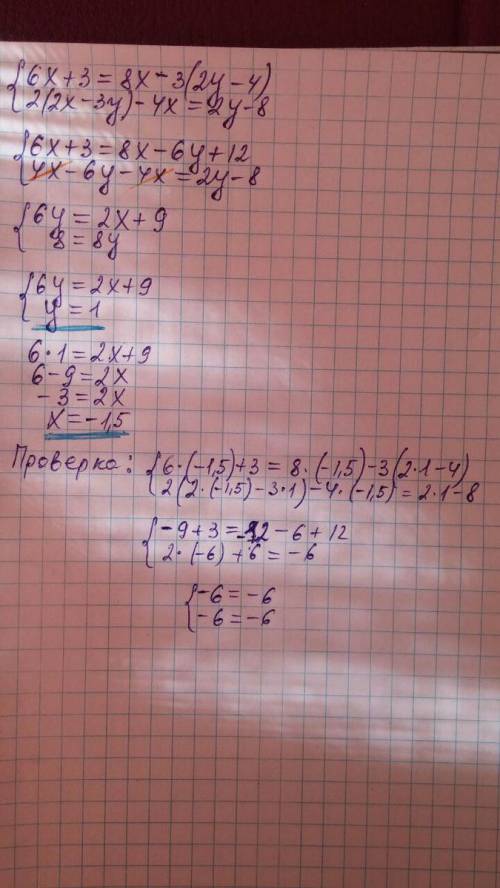 {6x+3 = 8x-3(2y-4)
{2(2x-3y)-4x = 2y-8
{6x+3 = 8x-6y+12
{4x-6y-4x = 2y-8
{6y = 2x+9
{8 = 8y
{6y = 2x+9
{y = 1
6·1 = 2x+9
6-9 = 2x
-3 = 2x
x = -1,5
Проверка: {6·(-1,5)+3 = 8·(-1,5)-3(2·1-4)
{2(2·(-1,5)-3·1)-4·(-1,5) = 2·1-8
{-9+3 = -12-6+12
{2·(-6)+6 = -6
{-6 = -6
{-6 = -6